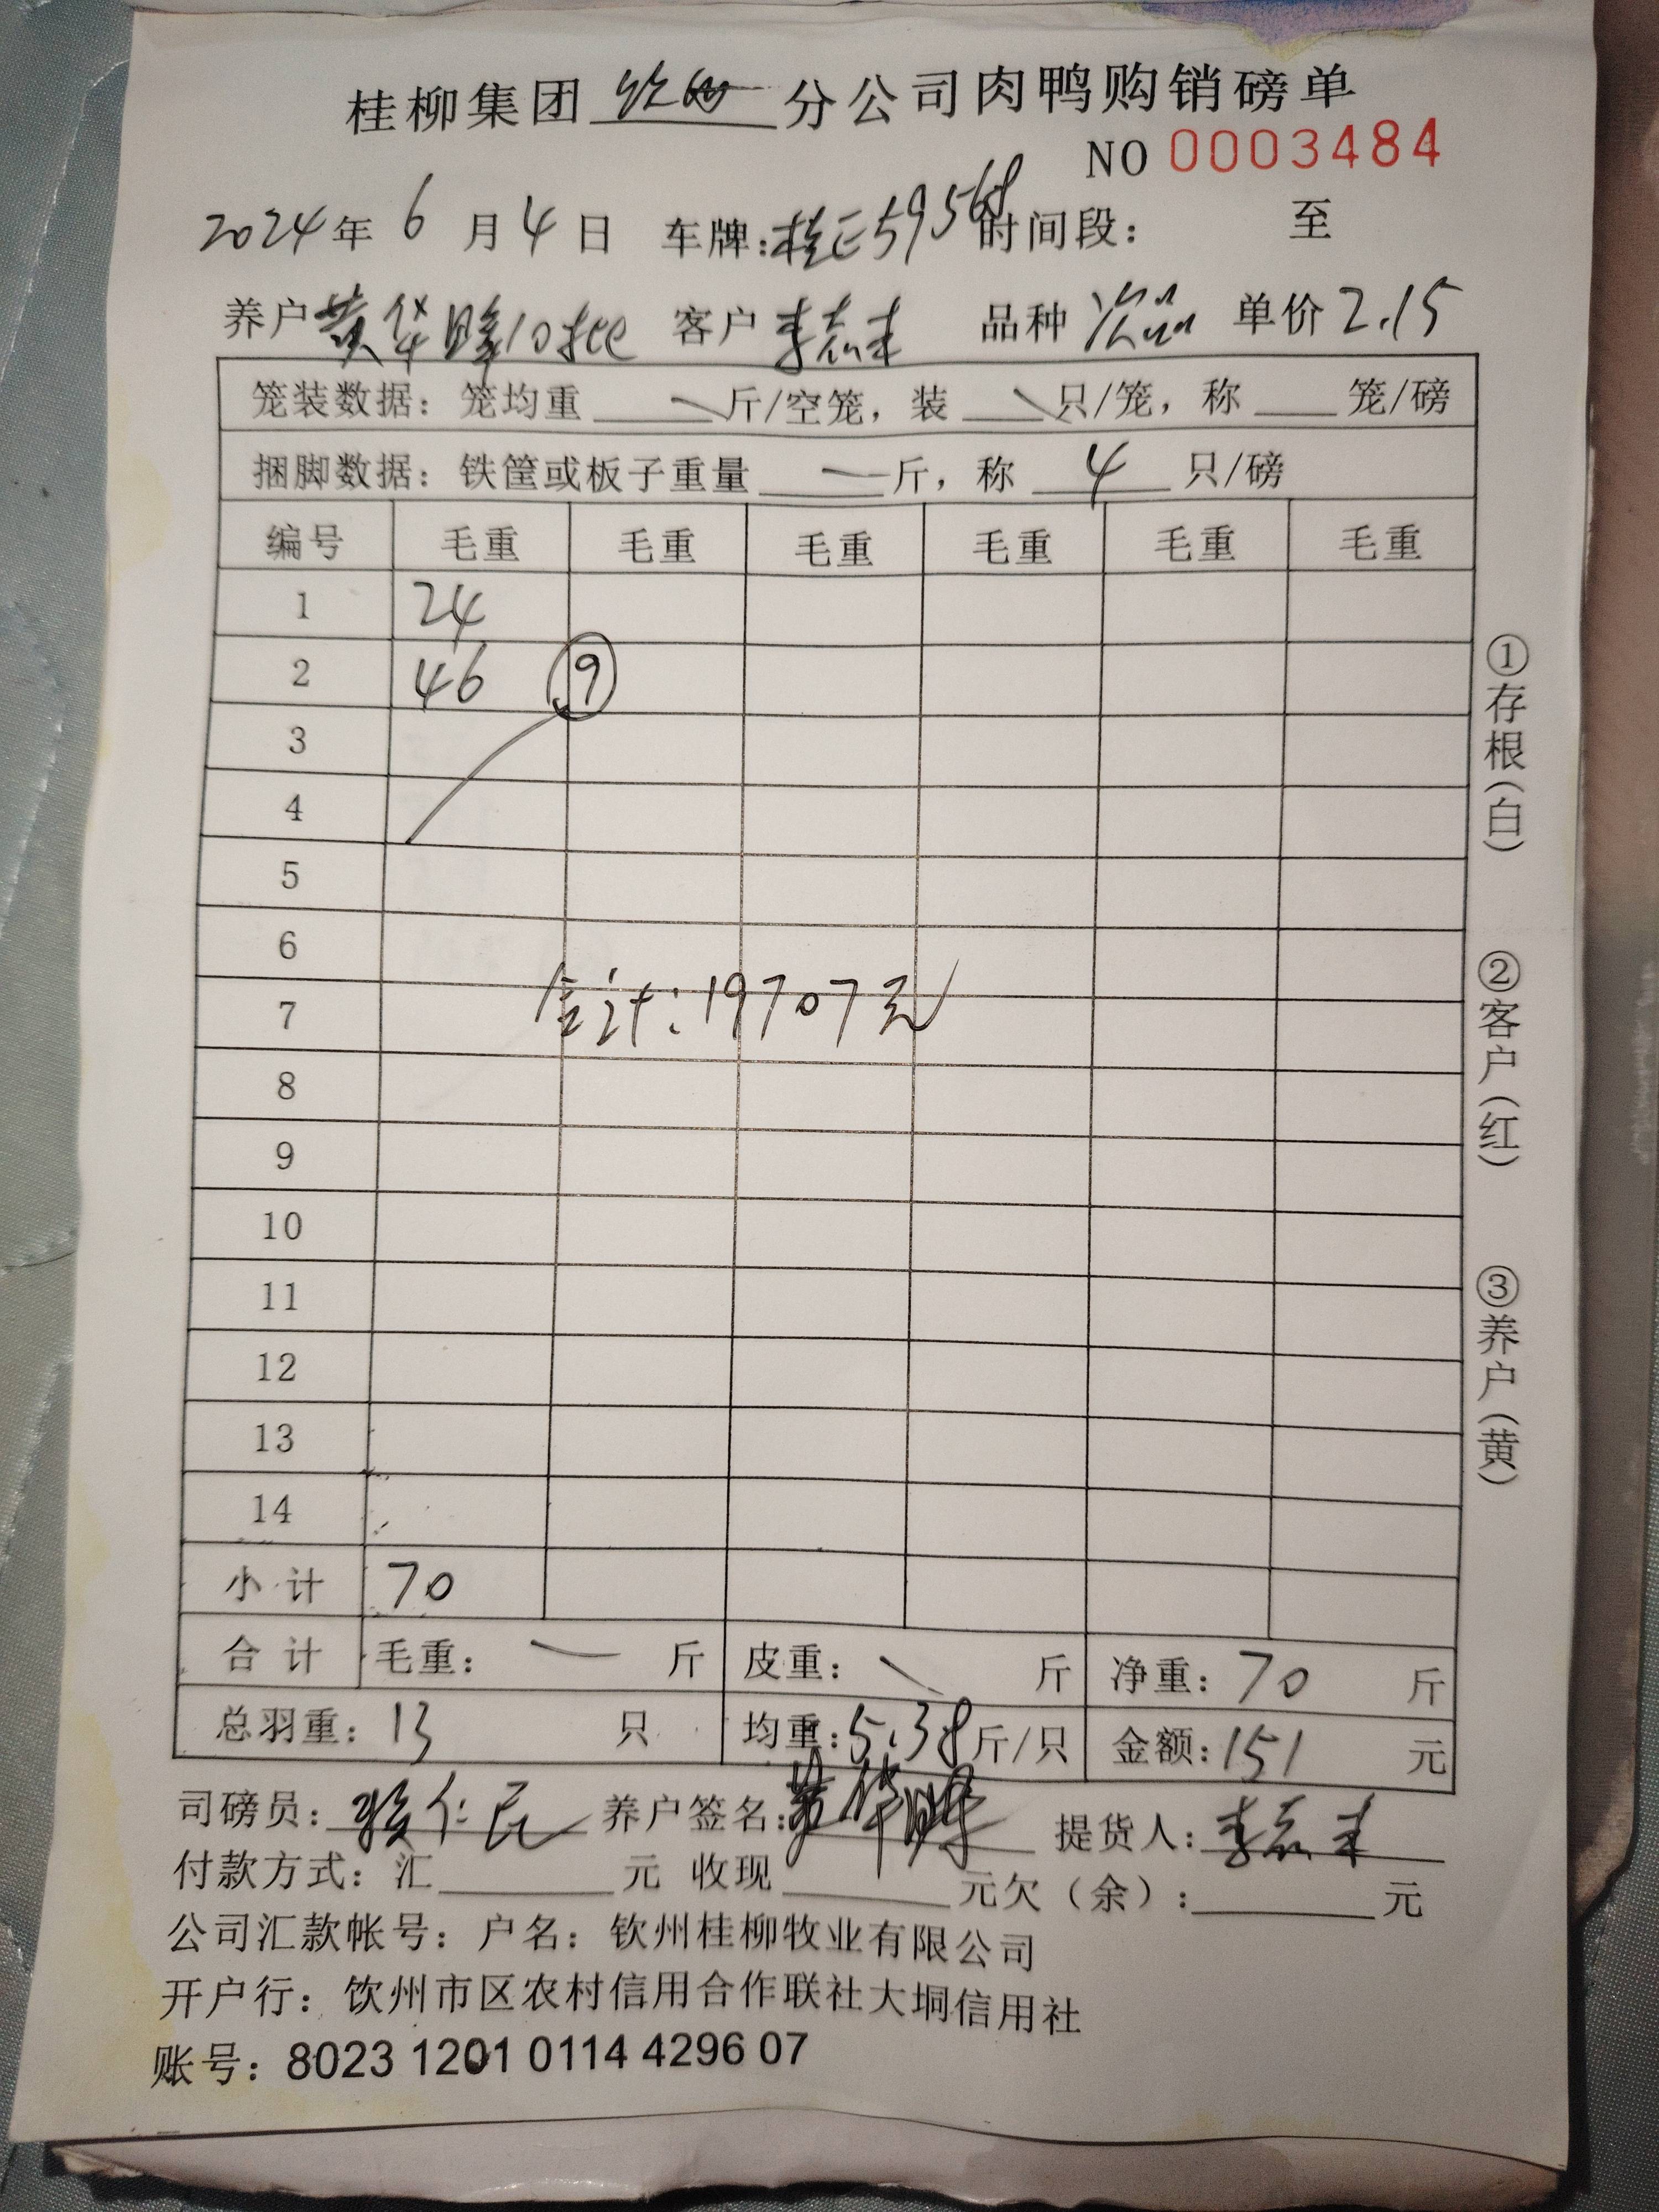 桂柳集团 钦州 分公司肉鸭购销磅单
NO 0003484
2024年 6 月 4 日 车牌:桂E59568 时间段: 至
养户 黄华峰10批 客户 李志丰 品种 次品 单价 2.15
笼装数据: 笼均重 斤/空笼, 装 只/笼, 称 笼/磅
捆脚数据: 铁筐或板子重量 斤, 称 4 只/磅
编号 毛重 毛重 毛重 毛重 毛重 毛重
1 24
2 46 ⑨
3
4
5
6
7 合计: 19707元
8
9
10
11
12
13
14
小计 70
合计 毛重: 斤 皮重: 斤 净重: 70 斤
总羽重: 13 只 均重: 5.38 斤/只 金额: 151 元
司磅员: 仁民 养户签名: 黄华峰 提货人: 李志丰
付款方式: 汇 元 收现 元欠(余): 元
公司汇款帐号: 户名: 钦州桂柳牧业有限公司
开户行: 钦州市区农村信用合作联社大垌信用社
账号: 8023 1201 0114 4296 07
①存根(白)
②客户(红)
③养户(黄)